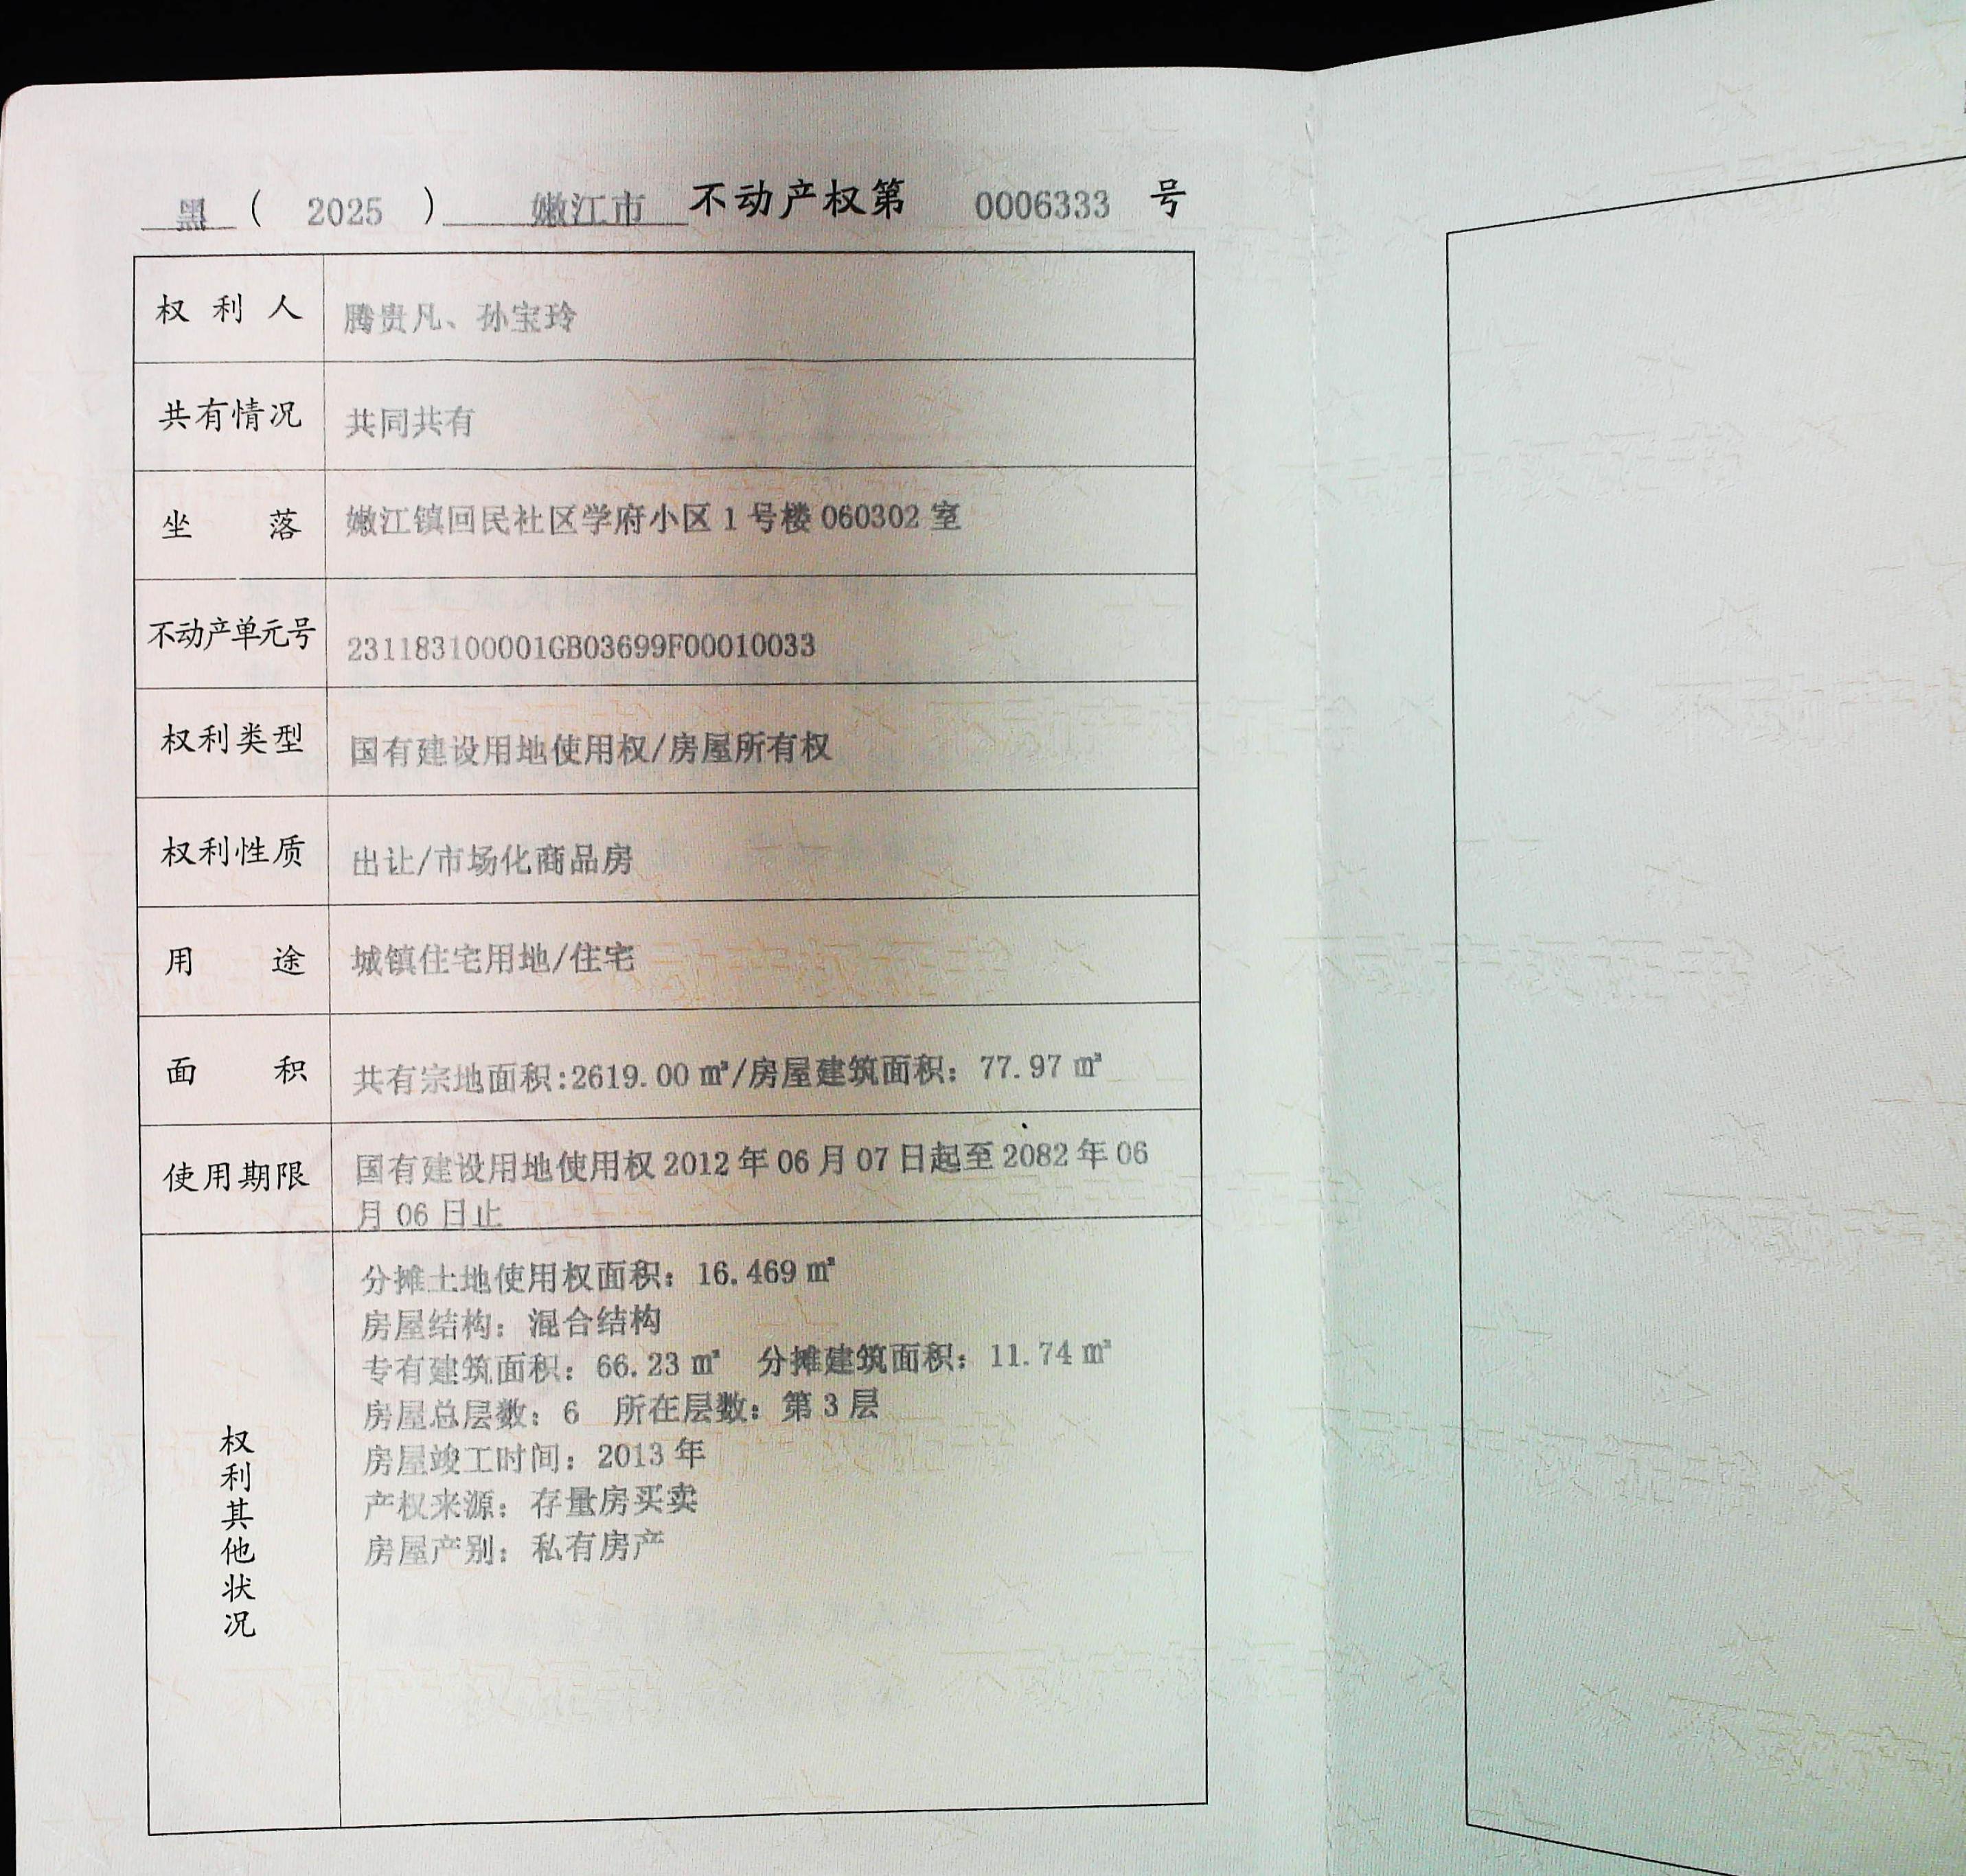 黑 ( 2025 ) 嫩江市 不动产权第 0006333 号
权利人 腾贵凡、孙宝玲
共有情况 共同共有
坐落 嫩江镇回民社区学府小区 1 号楼 060302 室
不动产单元号 231183100001GB03699F00010033
权利类型 国有建设用地使用权/房屋所有权
权利性质 出让/市场化商品房
用途 城镇住宅用地/住宅
面积 共有宗地面积:2619.00 ㎡/房屋建筑面积: 77.97 ㎡
使用期限 国有建设用地使用权 2012 年 06 月 07 日起至 2082 年 06
月 06 日止
权利其他状况
分摊土地使用权面积: 16.469 ㎡
房屋结构: 混合结构
专有建筑面积: 66.23 ㎡ 分摊建筑面积: 11.74 ㎡
房屋总层数: 6 所在层数: 第 3 层
房屋竣工时间: 2013 年
产权来源: 存量房买卖
房屋产别: 私有房产